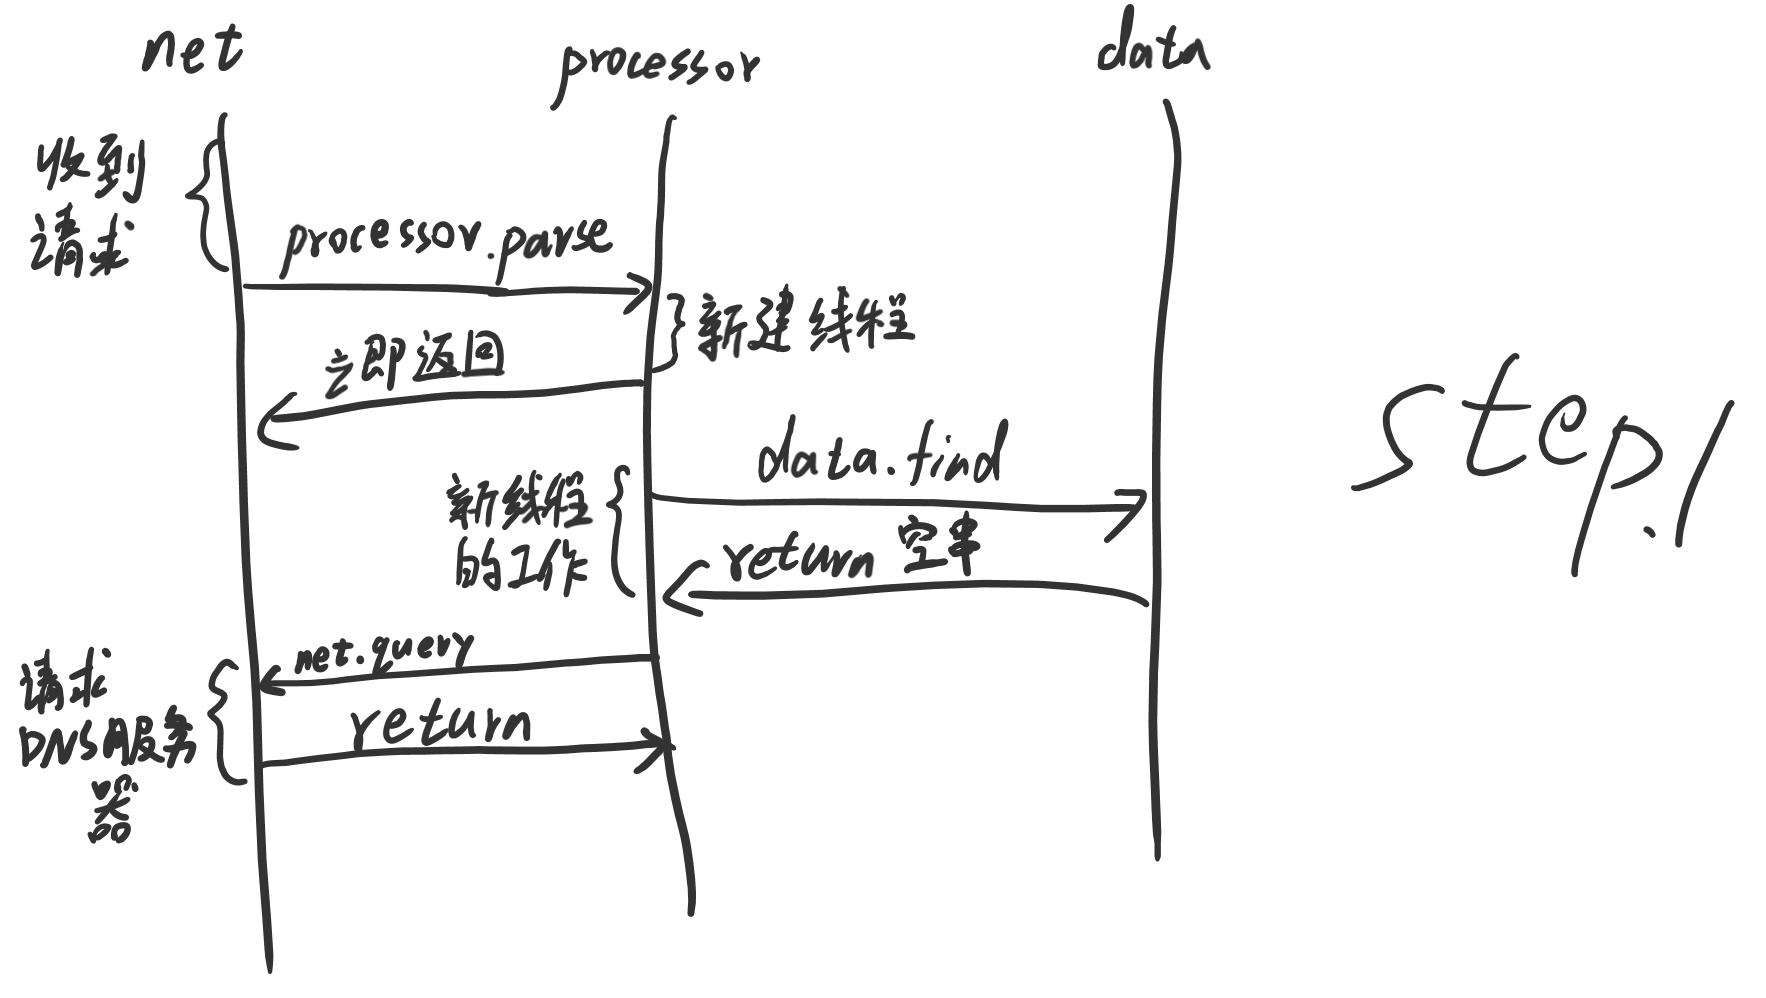 net
processor
data
收到
请求
processor.parse
新建线程
立即返回
data.find
新线程
的工作
return 空串
net.query
请求
DNS服务
器
return
step.1